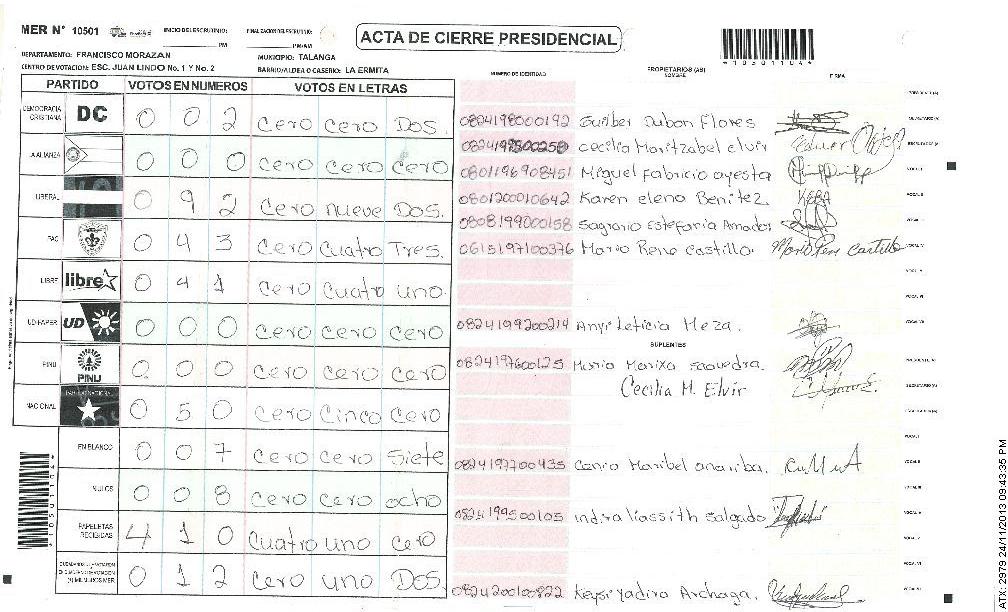 MER N° 10501 INICIO DEL ESCRUTINIO: FINALIZACION ESCRUTINIO:
PM PM/AM
ACTA DE CIERRE PRESIDENCIAL
*10501104*
DEPARTAMENTO: FRANCISCO MORAZAN MUNICIPIO: TALANGA
CENTRO DE VOTACION: ESC. JUAN LINDO No. 1 Y No. 2 BARRIO/ALDEA O CASERIO: LA ERMITA
NUMERO DE IDENTIDAD PROPIETARIOS (AS) NOMBRE FIRMA
PARTIDO VOTOS EN NUMEROS VOTOS EN LETRAS
DEMOCRACIA CRISTIANA DC 0 0 2 cero cero Dos.
LA ALIANZA 0 0 0 cero cero cero
LIBERAL 0 9 2 cero nueve Dos.
PAC 0 4 3 cero cuatro Tres.
LIBRE libre 0 4 1 cero cuatro uno.
UD-FAPER UD 0 0 0 cero cero cero
PINU PINU 0 0 0 cero cero cero
NACIONAL 0 5 0 cero cinco cero
EN BLANCO 0 0 7 cero cero siete
NULOS 0 0 8 cero cero ocho
PAPELETAS RECIBIDAS 4 1 0 cuatro uno cero
0 1 2 cero uno Dos.
0824198000192 Guilber Dubon Flores
cecilia Maritzabel elvir
0801196908451 Miguel Fabricio ayesta
0801200010642 Karen elena Benitez.
0808199000158 Sagrario Estefania Amador
0615197100376 Mario Rene Castillo. Mario Rene Castillo
0824199200214 Anyi Leticia Meza.
SUPLENTES
0824197600125 Maria Marixa saavedra.
Cecilia M. Elvir
0824197700435 Maribel
0824199500105 indira salgado
0824200100822 Keysi yadira Archaga.
*10501104*
ATX: 2979 24/11/2013 09:43:35 PM